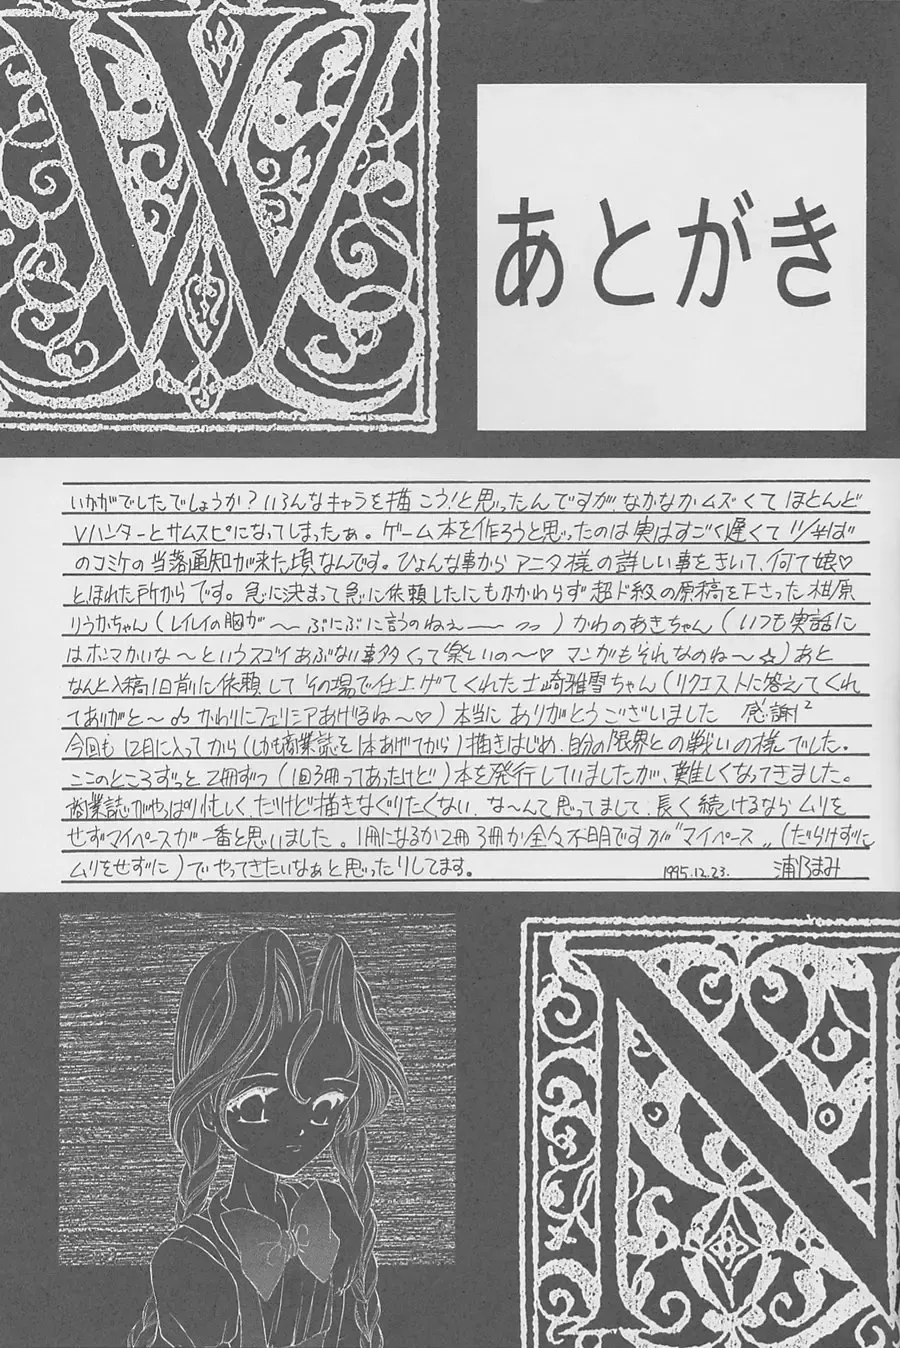 W
あとがき
いかがでしたでしょうか？いろんなキャラを描こう！と思ったんですがなかなかムズくてほとんど
Vハンターとサムスピになってしまったぁ。ゲーム本を作ろうと思ったのは実はすごく遅くて
のコミケの当落通知が来た頃なんです。ひょんな事からアニタ様の詳しい事をきいて、何て娘♡
とほれた所からです。急に決まって急に依頼したにもかかわらず超ド級の原稿を下さった梶原
りうかちゃん（レイレイの胸が〜ぷにぷに言うのねぇ――）かわのあきちゃん（いつも実話に
はホンマかいな〜というスゴイあぶない事多くって楽しいの〜♡マンガもそれなのね〜☆）あと
なんと入稿1日前に依頼してその場で仕上げてくれた士崎雅雪ちゃん（リクエストに答えてくれ
てありがと〜♪かわりにフェリシアあげるね〜♡）本当にありがとうございました 感謝²
今回も12月に入ってから（しかも商業誌を1本あげてから）描きはじめ、自分の限界との戦いの様でした。
ここのところずっと2冊ずつ（1回3冊ってあったけど）本を発行していましたが、難しくなってきました。
商業誌がやっぱり忙しく、だけど描きなぐりたくない、な〜んて思ってまして、長く続けるならムリを
せずマイペースが一番と思いました。1冊になるか2冊3冊か全々不明ですが〝マイペース〟（だらけずに
ムリをせずに）でやってきたいなぁと思ったりしてます。 1995.12.23. 浦乃まみ
N